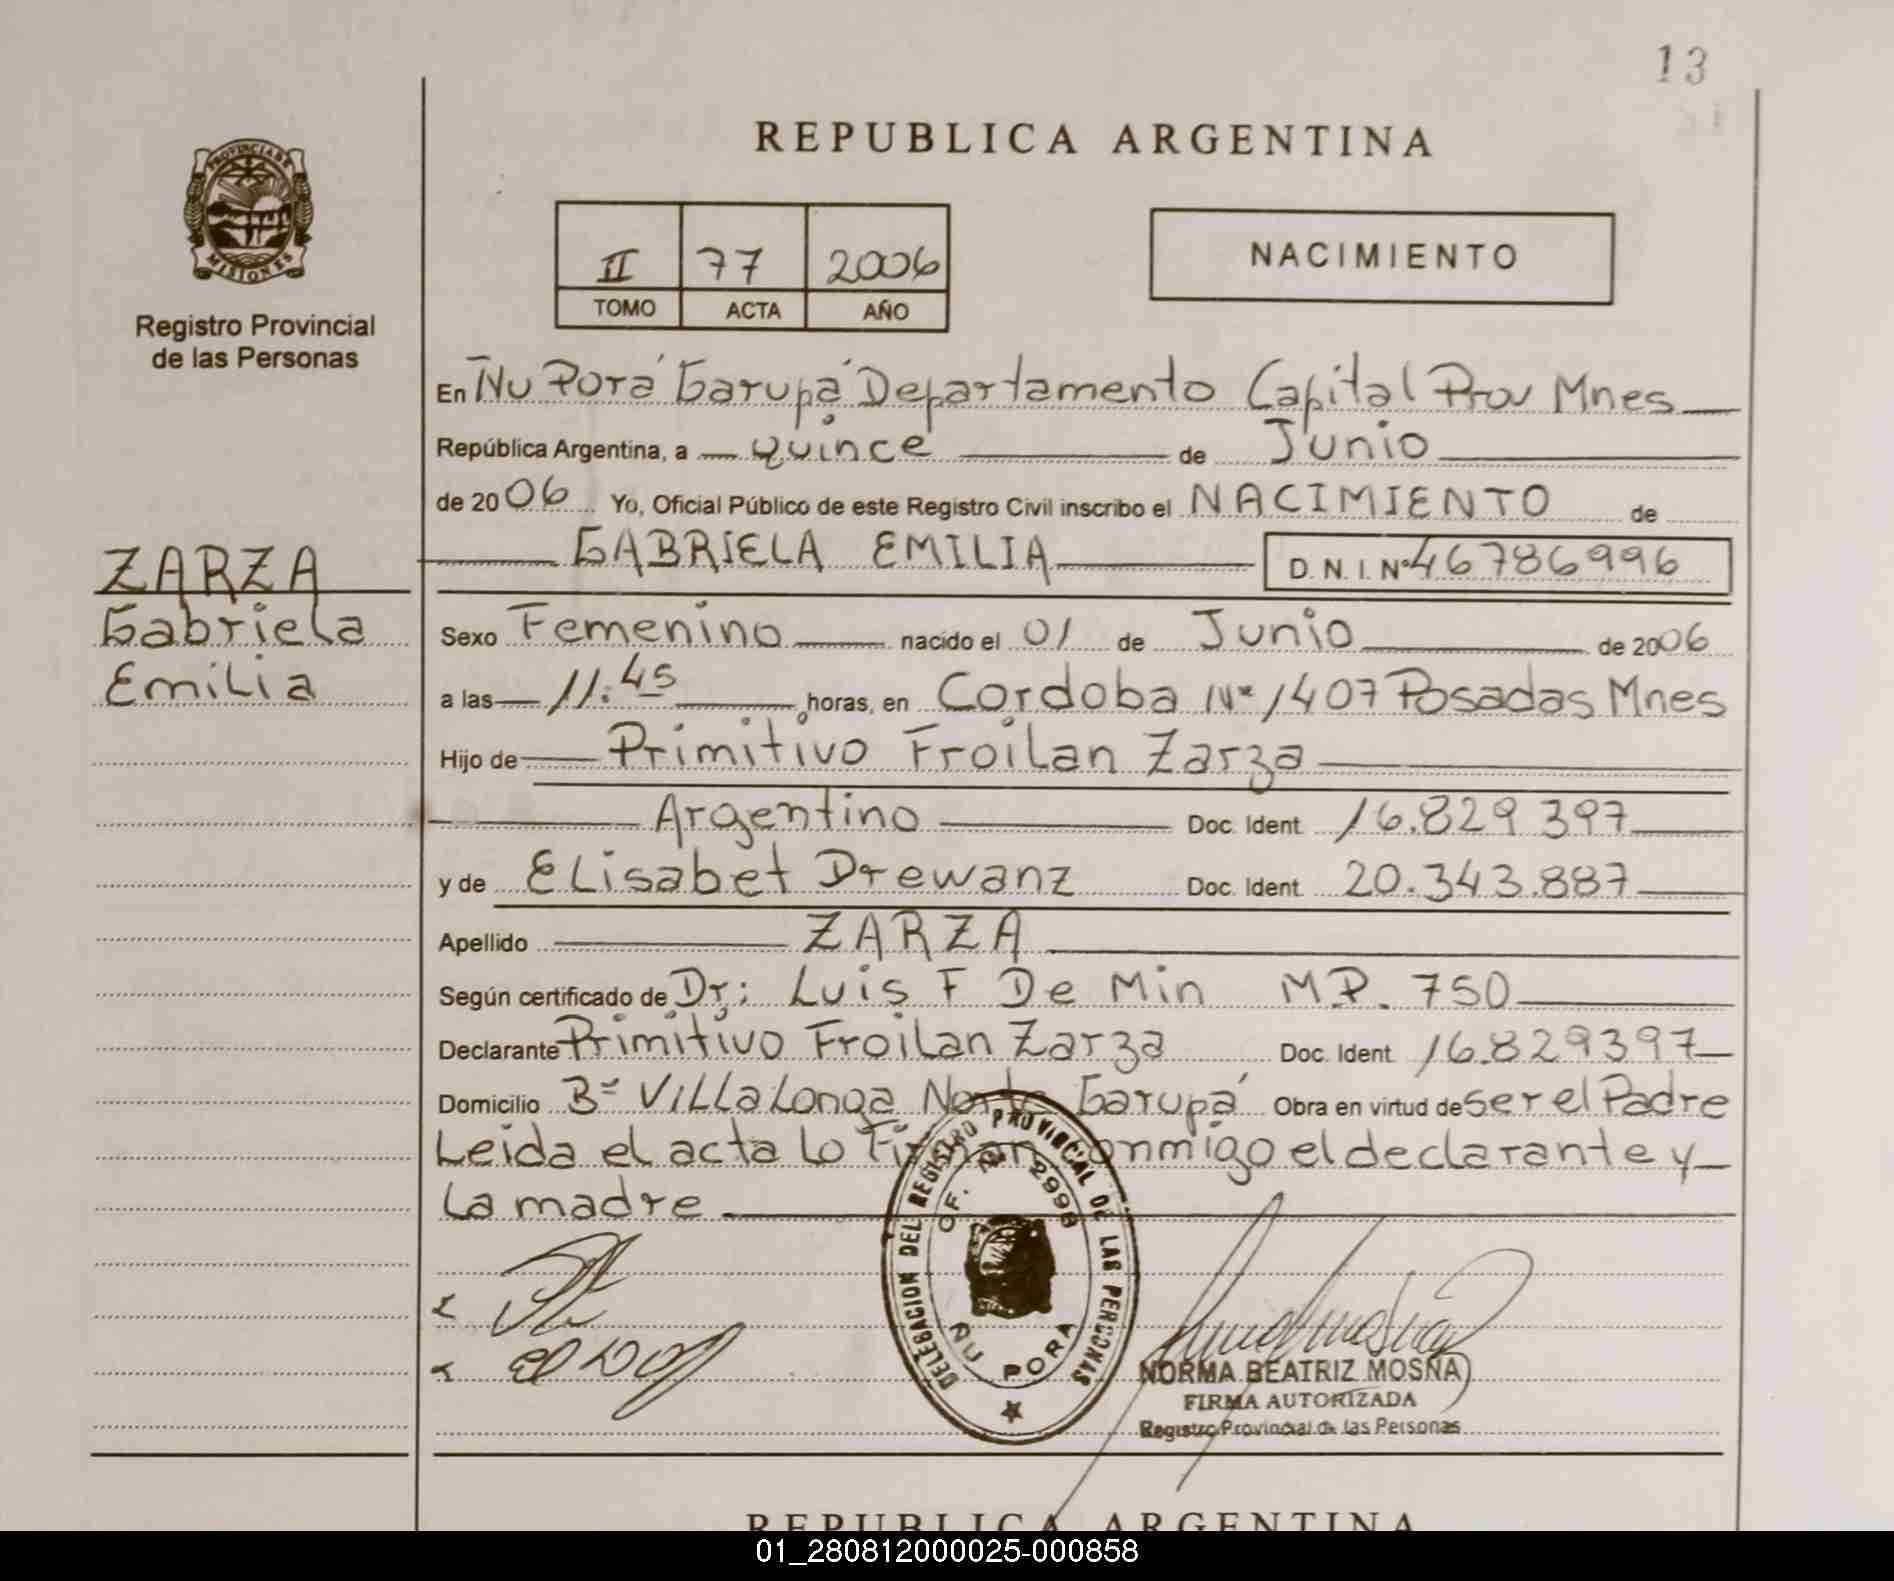 13
REPUBLICA ARGENTINA
PROVINCIA DE
MISIONES
Registro Provincial
de las Personas
II 77 2006
TOMO ACTA AÑO
NACIMIENTO
En Ñu Porá Garupá Departamento Capital Prov Mnes
República Argentina, a quince de Junio
de 2006 Yo, Oficial Público de este Registro Civil inscribo el NACIMIENTO de
GABRIELA EMILIA D. N. I. Nº 46786996
ZARZA
Gabriela
Emilia
Sexo Femenino nacido el 01 de Junio de 2006
a las 11:45 horas, en Cordoba Nº 1407 Posadas Mnes
Hijo de Primitivo Froilan Zarza
Argentino Doc. Ident. 16.829 397
y de Elisabet Drewanz Doc. Ident. 20.343.887
Apellido ZARZA
Según certificado de Dr: Luis F De Min M.P. 750
Declarante Primitivo Froilan Zarza Doc. Ident. 16.829397
Domicilio Bº Villalonga Norte Garupá Obra en virtud de ser el Padre
Leida el acta lo Firman conmigo el declarante y
La madre
DELEGACION DEL REGISTRO PROVINCIAL DE LAS PERSONAS
OF. 2998
ÑU PORA
NORMA BEATRIZ MOSNA
FIRMA AUTORIZADA
Registro Provincial de las Personas
REPUBLICA ARGENTINA
01_280812000025-000858